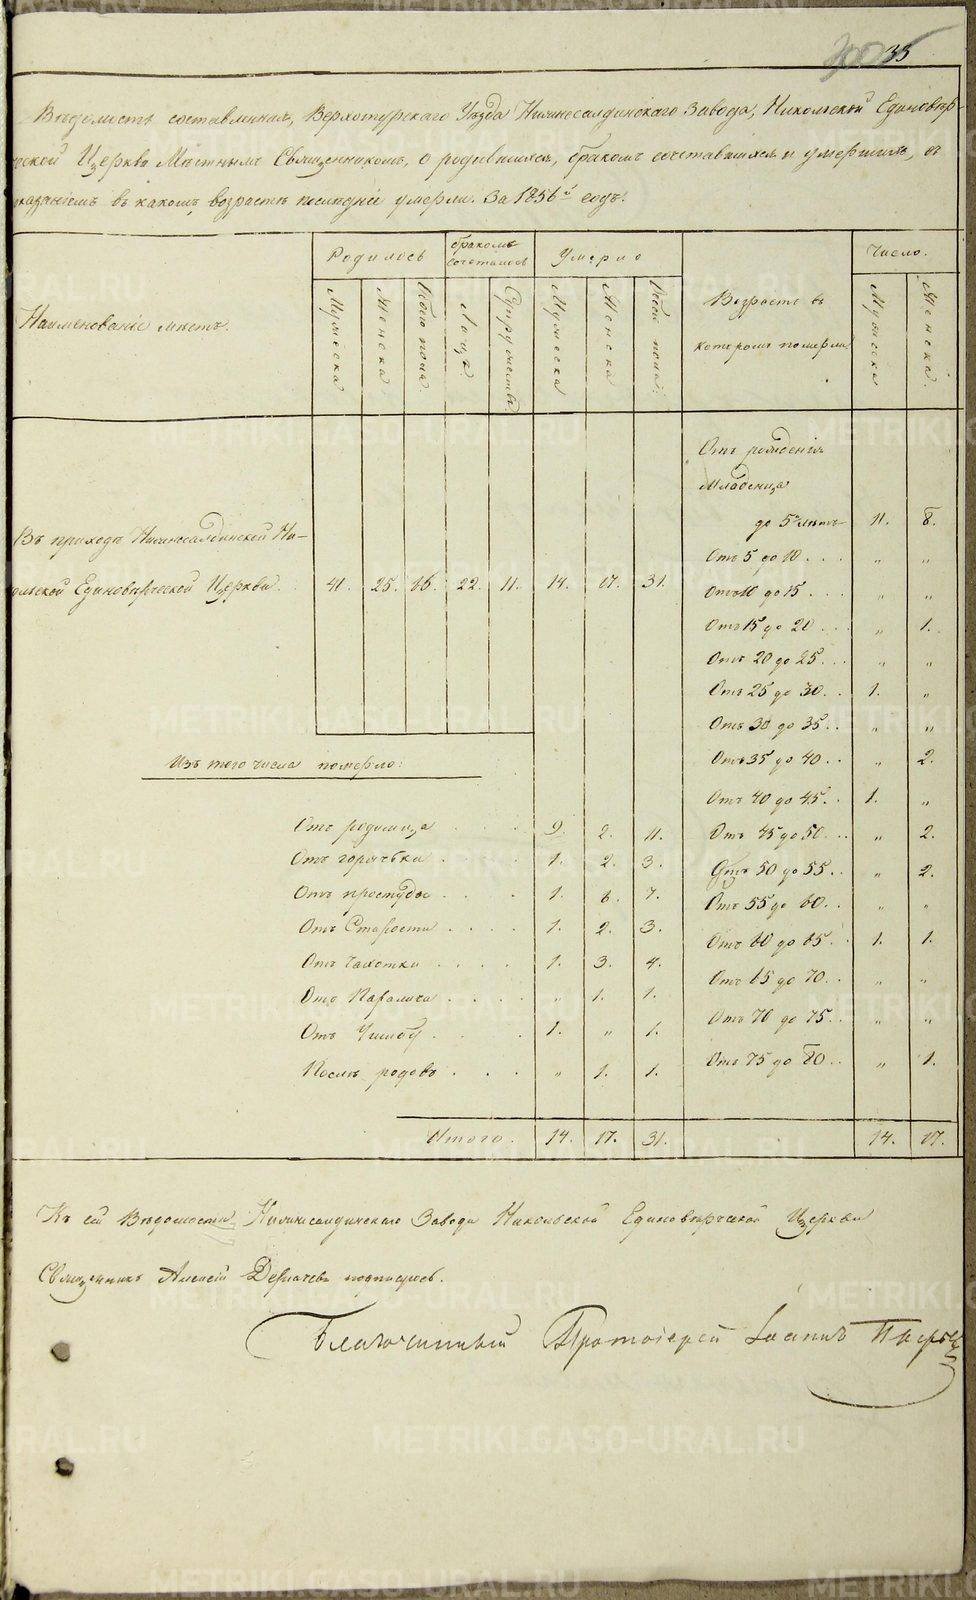 35
Вѣдомость составленная, Верхотурскаго Уѣзда Нижнесалдинскаго Завода, Никольской Единовѣр-
ческой Церкви Мѣстнымъ Священникомъ, о родившихся, бракомъ сочетавшихся и умершихъ, съ
показаніемъ въ какомъ возрастѣ послѣдніе умерли. За 1856й годъ.
Наименованіе мѣстъ.
Родилось
Мужеска
Женска
Обоего пола.
бракомъ сочеталось
Лицъ
Супружествъ
Умерло
Мужеска
Женска
Обоего пола.
Возрастъ въ
которомъ померли
Число.
Мужеска
Женска.
Въ приходѣ Нижнесалдинской Ни-
кольской Единовѣрческой Церкви. 41. 25. 66. 22. 11. 14. 17. 31.
Отъ рожденія
Младенца
до 5 лѣтъ 11. 8.
Отъ 5 до 10 . . . „ „
Отъ 10 до 15 . . . „ „
Отъ 15 до 20 . . . „ 1.
Отъ 20 до 25 . . . „ „
Отъ 25 до 30 . . 1. „
Отъ 30 до 35 . . „ „
Отъ 35 до 40 . . „ 2.
Отъ 40 до 45 . . 1. „
Отъ 45 до 50 . . . „ 2.
Отъ 50 до 55 . . „ 2.
Отъ 55 до 60 . . „ „
Отъ 60 до 65 . . 1. 1.
Отъ 65 до 70 . . „ „
Отъ 70 до 75 . . „ „
Отъ 75 до 80 . . „ 1.
Изъ того числа померло:
Отъ родимца . . . 9. 2. 11.
Отъ горячьки . . . . 1. 2. 3.
Отъ простуды . . . 1. 6. 7.
Отъ Старости . . . . 1. 2. 3.
Отъ чахотки . . . . 1. 3. 4.
Отъ Паралича . . . . „ 1. 1.
Отъ . . . 1. „ 1.
Послѣ родовъ . . . „ 1. 1.
Итого. 14. 17. 31. 14. 17.
Къ сей Вѣдомости Нижнесалдинскаго Завода Никольской Единовѣрческой Церкви
Священникъ Алексій Дерпачевъ подписуюсь.
Благочинный Протоіерей Іоаннъ
METRIKI.GASO-URAL.RU